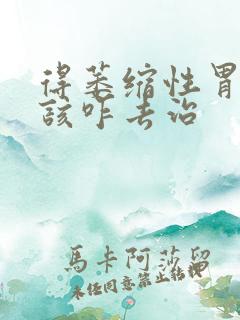 得萎缩性胃
该咋去治
馬卡阿莎留
未经同意禁止转载